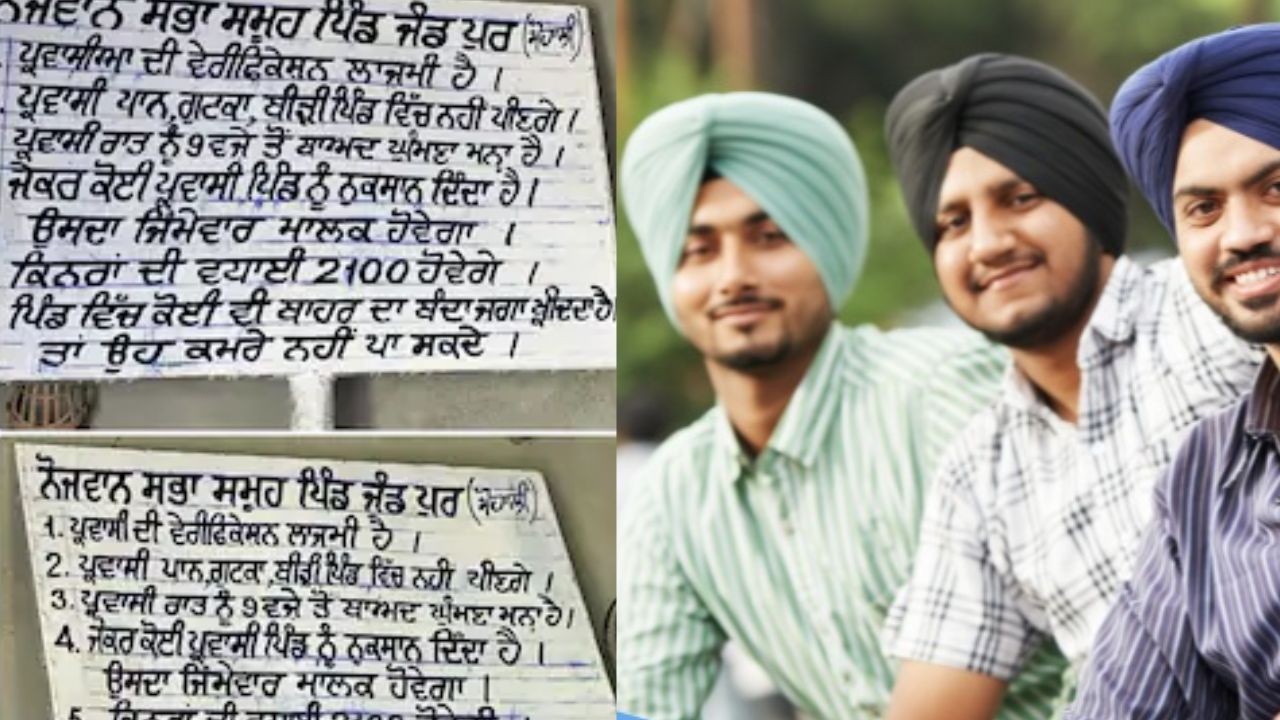 ਨੌਜਵਾਨ ਸਭਾ ਸਮੂਹ ਪਿੰਡ ਜੰਡ ਪੁਰ (ਮੋਹਾਲੀ)
ਪ੍ਰਵਾਸੀਆ ਦੀ ਵੇਰੀਫਿਕੇਸਨ ਲਾਜਮੀ ਹੈ ।
ਪ੍ਰਵਾਸੀ ਪਾਨ,ਗੁਟਕਾ, ਬੀੜੀ ਪਿੰਡ ਵਿੱਚ ਨਹੀ ਪੀਣਗੇ ।
ਪ੍ਰਵਾਸੀ ਰਾਤ ਨੂੰ 9 ਵਜੇ ਤੋਂ ਬਾਅਦ ਘੁੰਮਣਾ ਮਨ੍ਹਾ ਹੈ ।
ਜੇਕਰ ਕੋਈ ਪ੍ਰਵਾਸੀ ਪਿੰਡ ਨੂੰ ਨੁਕਸਾਨ ਦਿੰਦਾ ਹੈ ।
ਉਸਦਾ ਜਿੰਮੇਵਾਰ ਮਾਲਕ ਹੋਵੇਗਾ ।
ਕਿਨਰਾਂ ਦੀ ਵਧਾਈ 2100 ਹੋਵੇਗੇ ।
ਪਿੰਡ ਵਿੱਚ ਕੋਈ ਵੀ ਬਾਹਰ ਦਾ ਬੰਦਾ ਜਗਾ ਖ੍ਰੀਦਦਾ ਹੈ
ਤਾਂ ਉਹ ਕਮਰੇ ਨਹੀਂ ਪਾ ਸਕਦੇ ।
ਨੋਜਵਾਨ ਸਭਾ ਸਮੂਹ ਪਿੰਡ ਜੰਡ ਪੁਰ (ਮੋਹਾਲੀ)
1. ਪ੍ਰਵਾਸੀ ਦੀ ਵੇਰੀਫਿਕੇਸਨ ਲਾਜਮੀ ਹੈ ।
2. ਪ੍ਰਵਾਸੀ ਪਾਨ,ਗੁਟਕਾ, ਬੀੜੀ ਪਿੰਡ ਵਿੱਚ ਨਹੀ ਪੀਣਗੇ ।
3. ਪ੍ਰਵਾਸੀ ਰਾਤ ਨੂੰ 9 ਵਜੇ ਤੋਂ ਬਾਅਦ ਘੁੰਮਣਾ ਮਨਾ ਹੈ ।
4. ਜੇਕਰ ਕੋਈ ਪ੍ਰਵਾਸੀ ਪਿੰਡ ਨੂੰ ਨੁਕਸਾਨ ਦਿੰਦਾ ਹੈ ।
ਉਸਦਾ ਜਿੰਮੇਵਾਰ ਮਾਲਕ ਹੋਵੇਗਾ ।
5. ਕਿਨਰਾਂ ਦੀ ਵਧਾਈ 2100 ਹੋਵੇਗੀ ।